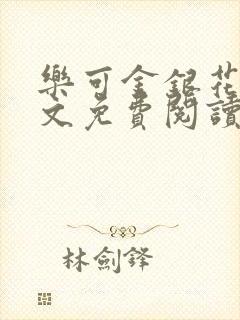 樂可金銀花
文免費閱讀
林劍鋒